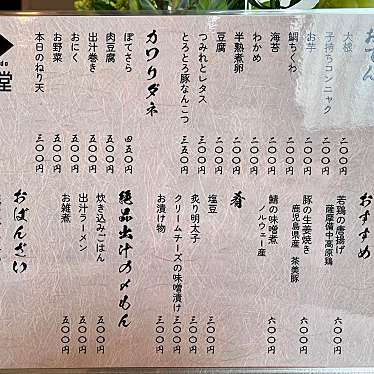 おでん
大根 二〇〇円
子持ちコンニャク 二〇〇円
お芋 二〇〇円
鯛ちくわ 二〇〇円
海苔 二〇〇円
わかめ 二〇〇円
豆腐 二〇〇円
半熟煮卵 二〇〇円
つみれとレタス 二〇〇円
とろとろ豚なんこつ 三五〇円
カワリダネ
ぽてさら 四五〇円
肉豆腐 五〇〇円
出汁巻き 五〇〇円
おにく 五〇〇円
お野菜 三〇〇円
本日のねり天 三〇〇円
堂
おすすめ
若鶏の唐揚げ 六〇〇円
薩摩備中高原鶏
豚の生姜焼き 六〇〇円
鹿児島県産 茶美豚
鯖の味噌煮 六〇〇円
ノルウェー産
肴
塩豆 三〇〇円
炙り明太子 五〇〇円
クリームチーズの味噌漬け 三〇〇円
お漬け物 三〇〇円
絶品出汁の〆めん
炊き込みごはん 五〇〇円
出汁ラーメン 五〇〇円
お雑煮 五〇〇円
おばんざい